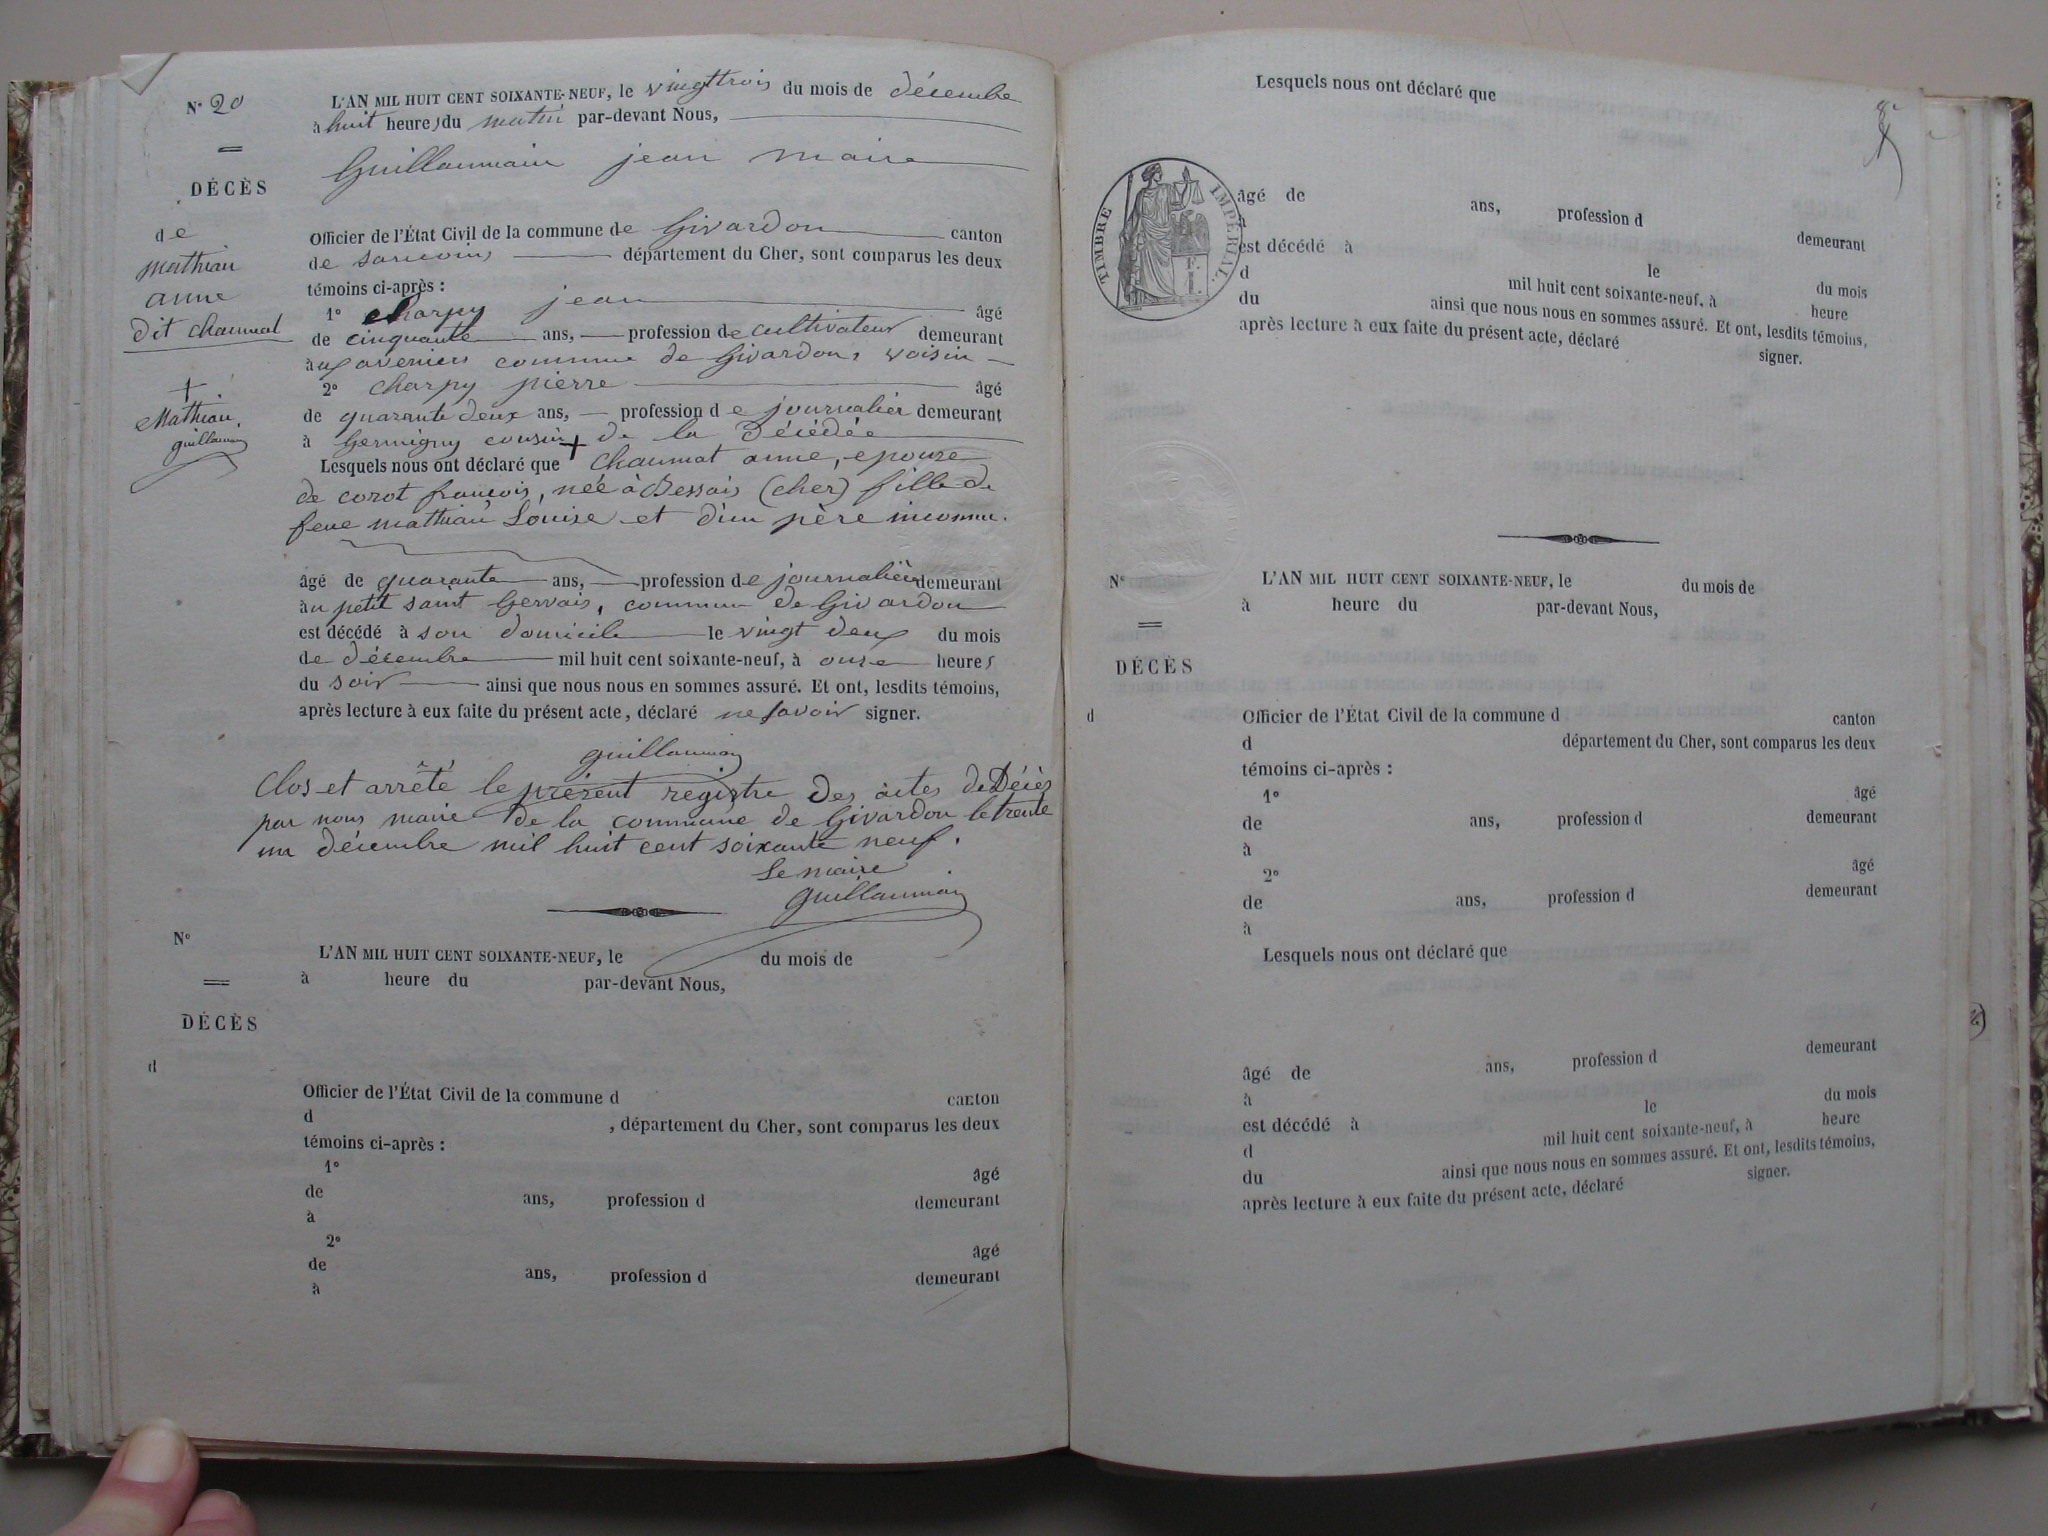 N° 20
L'AN MIL HUIT CENT SOIXANTE-NEUF, le vingt trois du mois de décembre
à huit heures du matin par-devant Nous,
Guillaumain jean maire
DÉCÈS
de
mathiau
anne
dit chaumat
+
Mathiau.
guillaumain
Officier de l'État Civil de la commune de Givardon canton
de sancoins département du Cher, sont comparus les deux
témoins ci-après :
1° charpy jean âgé
de cinquante ans, profession de cultivateur demeurant
aux commune de Givardon, voisin
2° charpy pierre âgé
de quarante deux ans, profession de journalier demeurant
à Germigny cousin + de la Décédée
Lesquels nous ont déclaré que chaumat anne, epouze
de corot francois, née à Bessais (cher) fille de
feue mathiau Louise et d'un père inconnu.
âgé de quarante ans, profession de journalière demeurant
au petit saint Gervais, commune de Givardon
est décédé à son domicile le vingt deux du mois
de décembre mil huit cent soixante-neuf, à onze heures
du soir ainsi que nous nous en sommes assuré. Et ont, lesdits témoins,
après lecture à eux faite du présent acte, déclaré ne savoir signer.
guillaumain
Clos et arrêté le présent registre des actes de Décès
par nous maire de la commune de Givardon le trente
un décembre mil huit cent soixante neuf.
Le maire
guillaumain
N°
L'AN MIL HUIT CENT SOIXANTE-NEUF, le du mois de
à heure du par-devant Nous,
DÉCÈS
d
Officier de l'État Civil de la commune d canton
d , département du Cher, sont comparus les deux
témoins ci-après :
1° âgé
de ans, profession d demeurant
à
2° âgé
de ans, profession d demeurant
à
Lesquels nous ont déclaré que
TIMBRE IMPÉRIAL.
âgé de ans, profession d demeurant
à
est décédé à le du mois
d mil huit cent soixante-neuf, à heure
du ainsi que nous nous en sommes assuré. Et ont, lesdits témoins,
après lecture à eux faite du présent acte, déclaré signer.
N°
L'AN MIL HUIT CENT SOIXANTE-NEUF, le du mois de
à heure du par-devant Nous,
DÉCÈS
d
Officier de l'État Civil de la commune d canton
d département du Cher, sont comparus les deux
témoins ci-après :
1° âgé
de ans, profession d demeurant
à
2° âgé
de ans, profession d demeurant
à
Lesquels nous ont déclaré que
âgé de ans, profession d demeurant
à
est décédé à le du mois
d mil huit cent soixante-neuf, à heure
du ainsi que nous nous en sommes assuré. Et ont, lesdits témoins,
après lecture à eux faite du présent acte, déclaré signer.